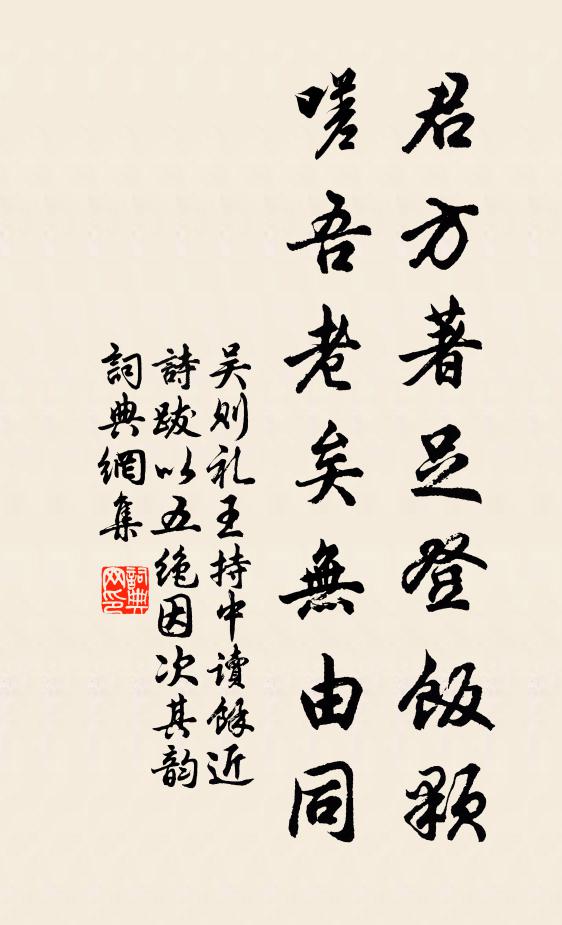 君方著足登飯顆
嗟吾老矣無由同
吴则礼王持中讀餘近
詩跋以五絶因次其韵
詞典網集
詞典
网印